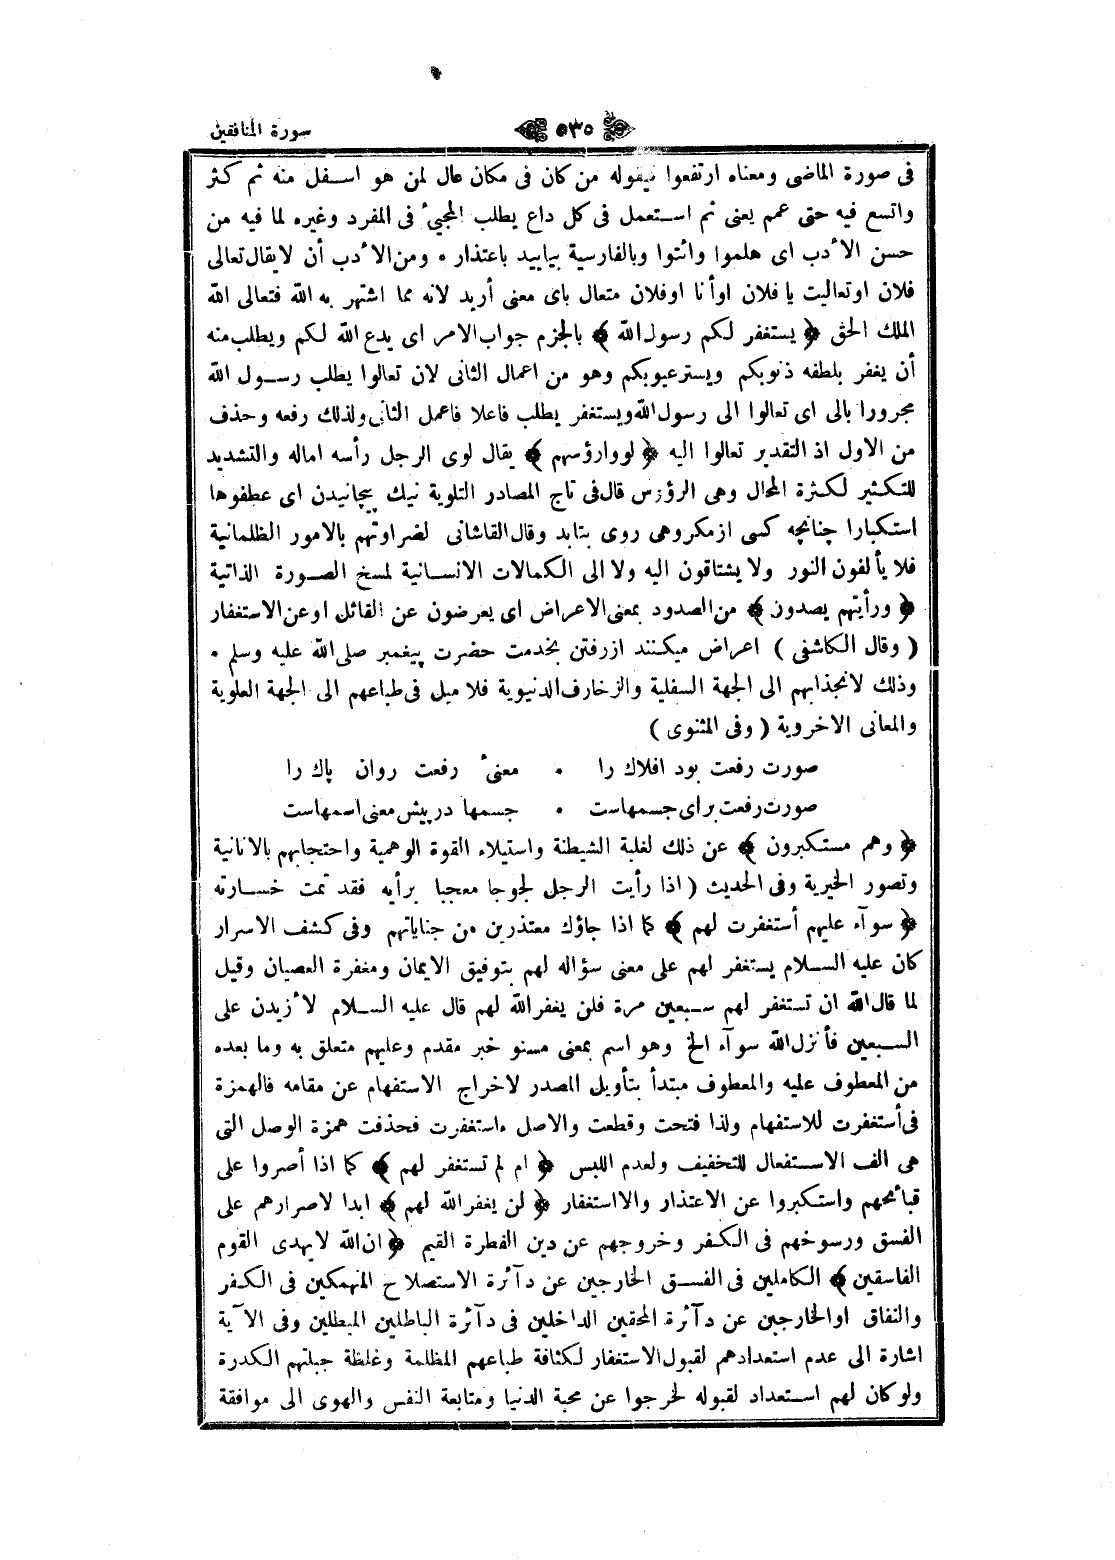 سورة المنافقين ٥٣٥
فى صورة الماضى ومعناه ارتفعوا فيقوله من كان فى مكان عال لمن هو اسفل منه ثم كثر
واتسع فيه حتى عمم يعنى ثم استعمل فى كل داع يطلب المجيئ فى المفرد وغيره لما فيه من
حسن الأدب اى هلموا وائتوا وبالفارسية بياييد باعتذار • ومن الأدب أن لايقال تعالى
فلان اوتعاليت يا فلان اوأنا اوفلان متعال باى معنى أريد لانه مما اشتهر به الله فتعالى الله
الملك الحق ﴿ يستغفر لكم رسول الله ﴾ بالجزم جواب الامر اى يدع الله لكم ويطلب منه
أن يغفر بلطفه ذنوبكم ويسترعيوبكم وهو من اعمال الثانى لان تعالوا يطلب رسول الله
مجرورا بالى اى تعالوا الى رسول الله ويستغفر يطلب فاعلا فاعمل الثانى ولذلك رفعه وحذف
من الاول اذ التقدير تعالوا اليه ﴿ لووارؤسهم ﴾ يقال لوى الرجل رأسه اماله والتشديد
للتكثير لكثرة المحال وهى الرؤس قال فى تاج المصادر التلوية نيك پيچانيدن اى عطفوها
استكبارا چنانچه كسى ازمكروهى روى بتابد وقال القاشانى لضراوتهم بالامور الظلمانية
فلا يألفون النور ولا يشتاقون اليه ولا الى الكمالات الانسانية لمسخ الصورة الذاتية
﴿ ورأيتهم يصدون ﴾ من الصدود بمعنى الاعراض اى يعرضون عن القائل اوعن الاستغفار
( وقال الكاشفى ) اعراض ميكنند ازرفتن بخدمت حضرت پيغمبر صلى الله عليه وسلم •
وذلك لانجذابهم الى الجهة السفلية والزخارف الدنيوية فلا ميل فى طباعهم الى الجهة العلوية
والمعانى الاخروية ( وفى المثنوى )
صورت رفعت بود افلاك را • معنئ رفعت روان پاك را
صورت رفعت براى جسمهاست • جسمها درپيش معنى اسمهاست
﴿ وهم مستكبرون ﴾ عن ذلك لغلبة الشيطنة واستيلاء القوة الوهمية واحتجابهم بالانانية
وتصور الخيرية وفى الحديث ( اذا رأيت الرجل لجوجا معجبا برأيه فقد تمت خسارته
﴿ سوآء عليهم أستغفرت لهم ﴾ كما اذا جاؤك معتذرين من جناياتهم وفى كشف الاسرار
كان عليه السلام يستغفر لهم على معنى سؤاله لهم بتوفيق الايمان ومغفرة العصيان وقيل
لما قال الله ان تستغفر لهم سبعين مرة فلن يغفر الله لهم قال عليه السلام لأزيدن على
السبعين فأنزل الله سوآء الخ وهو اسم بمعنى مستو خبر مقدم وعليهم متعلق به وما بعده
من المعطوف عليه والمعطوف مبتدأ بتأويل المصدر لاخراج الاستفهام عن مقامه فالهمزة
فى أستغفرت للاستفهام ولذا فتحت وقطعت والاصل ءاستغفرت فحذفت همزة الوصل التى
هى الف الاستفعال للتخفيف ولعدم اللبس ﴿ ام لم تستغفر لهم ﴾ كما اذا أصروا على
قبائحهم واستكبروا عن الاعتذار والااستغفار ﴿ لن يغفر الله لهم ﴾ ابدا لاصرارهم على
الفسق ورسوخهم فى الكفر وخروجهم عن دين الفطرة القيم ﴿ ان الله لايهدى القوم
الفاسقين ﴾ الكاملين فى الفسق الخارجين عن دآئرة الاستصلاح المنهمكين فى الكفر
والنفاق اوالخارجين عن دآئرة المحقين الداخلين فى دآئرة الباطلين المبطلين وفى الآية
اشارة الى عدم استعدادهم لقبول الاستغفار لكثافة طباعهم المظلمة وغلظة جبلتهم الكدرة
ولو كان لهم استعداد لقبوله لخرجوا عن محبة الدنيا ومتابعة النفس والهوى الى موافقة